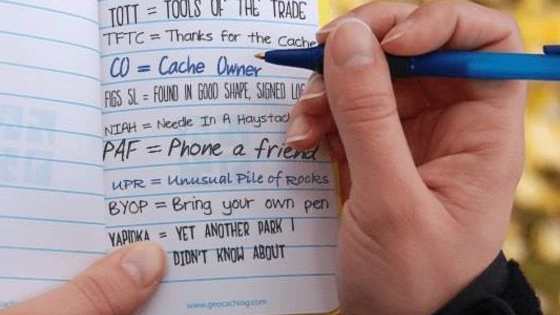 TOTT = TOOLS OF THE TRADE
TFTC = Thanks for the Cache
CO = Cache Owner
FIGS SL = FOUND IN GOOD SHAPE, SIGNED LO
NIAH = Needle In A Haystac
PAF = Phone a friend
UPR = Unusual Pile of Rocks
BYOP = Bring your own pen
YAPIDKA = YET ANOTHER PARK I
DIDN'T KNOW ABOUT
www.geocaching.com